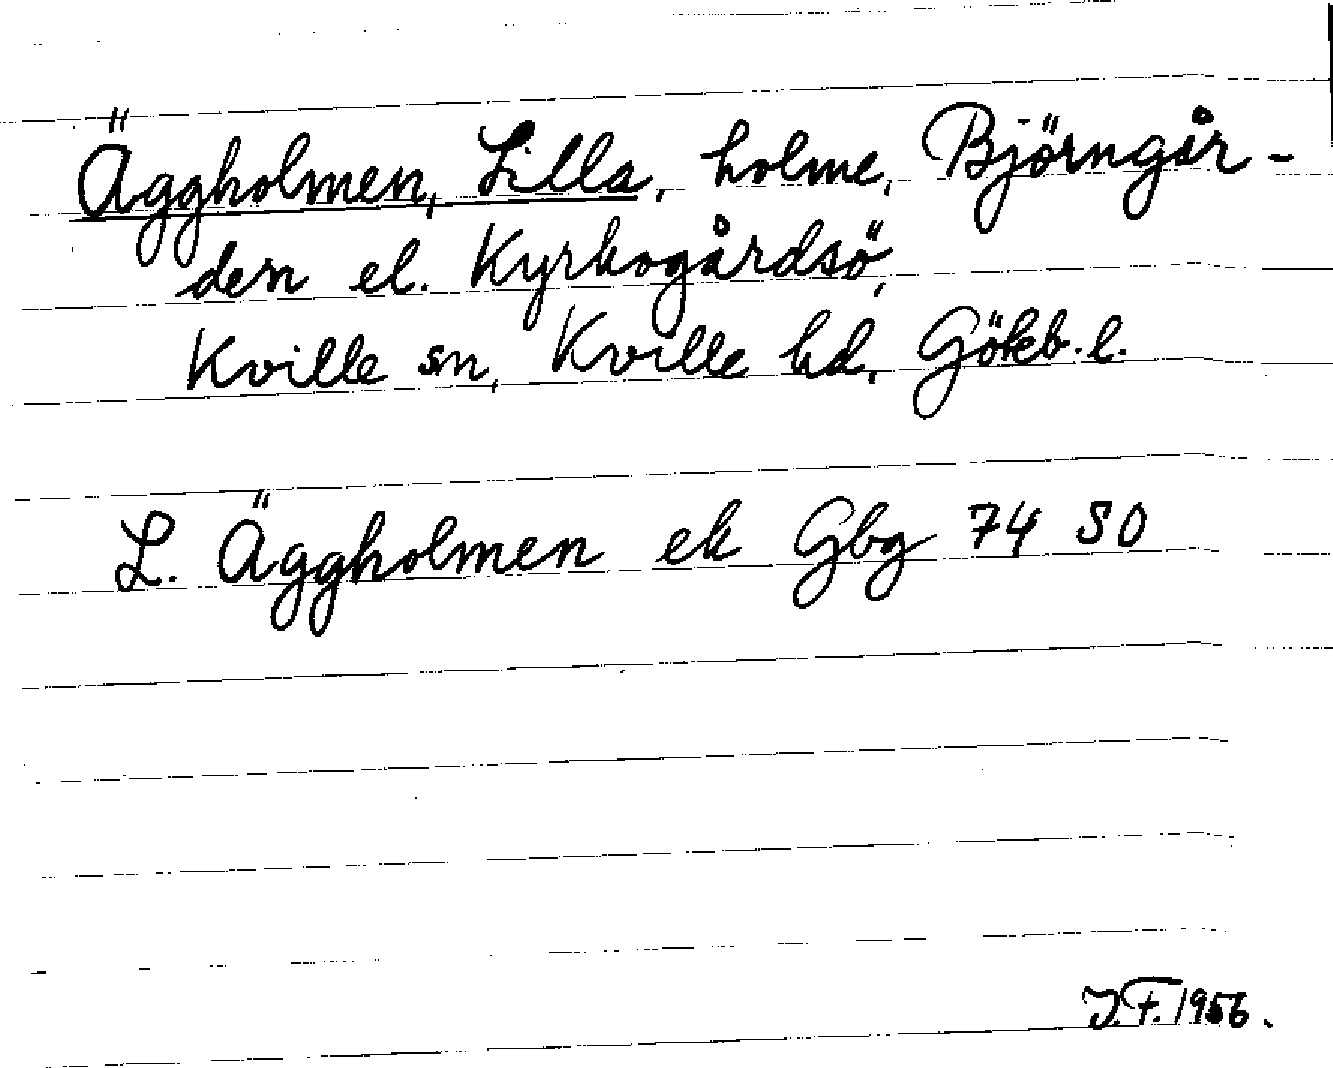 Äggholmen, Lilla, holme, Björngår-
den el. Kyrkogårdsö,
Kville sn, Kville hd, Göteb. l.
L. Äggholmen ek Gbg 74 SO
J.F. 1956.